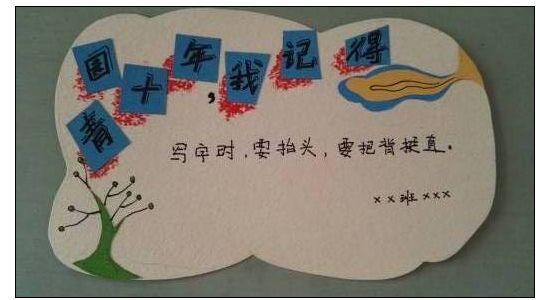 青园十年,我记得
写字时,要抬头,要把背挺直。
××班×××